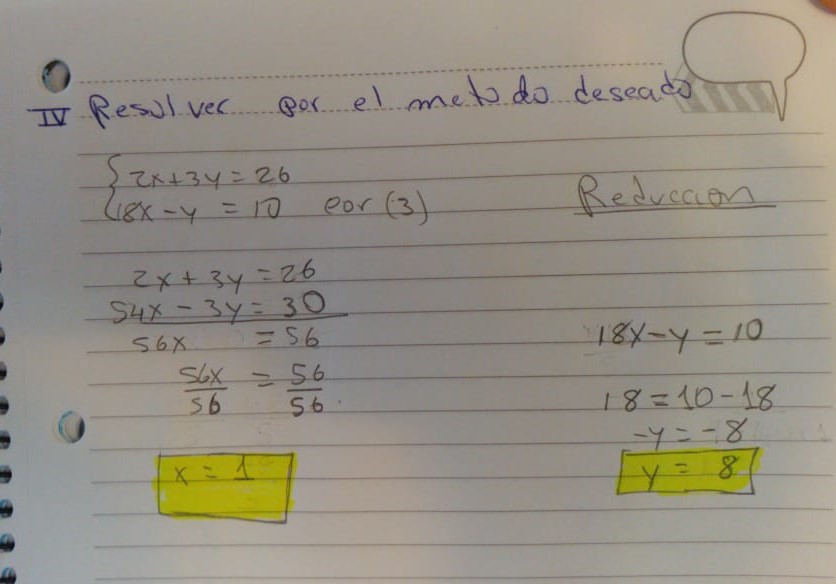 IV Resolver por el metodo deseado
2x+3y=26
18x-y=10 por (3)
Reduccion
2x+3y=26
54x-3y=30
56x =56
56x/56 = 56/56
x=1
18x-y=10
18=10-18
-y=-8
y=8